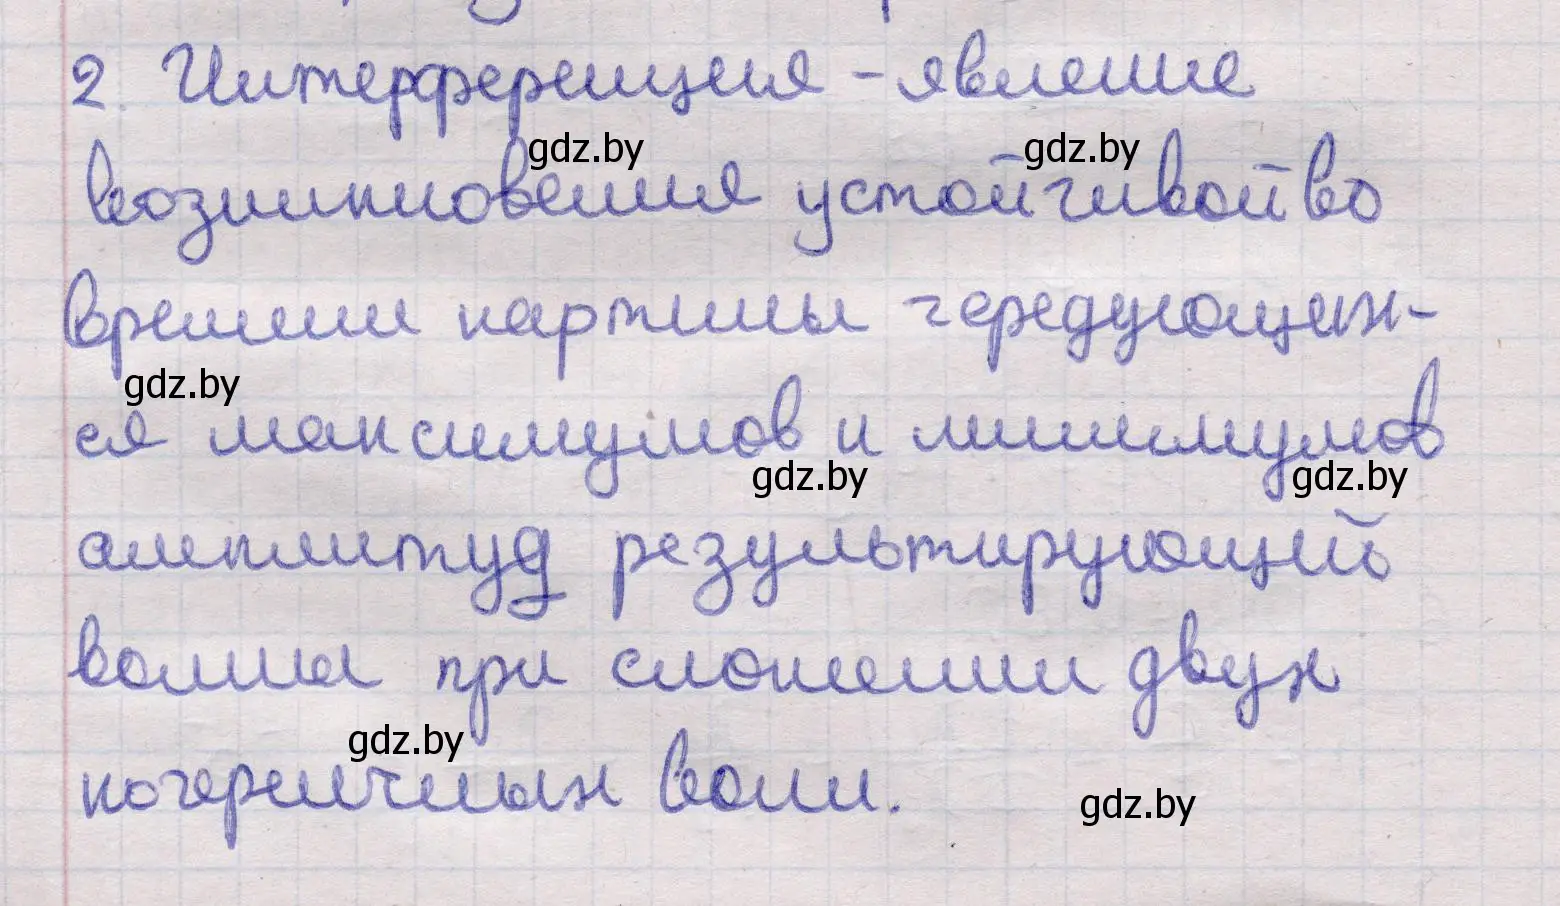 2. Интерференция - явление
gdz.by gdz.by
возникновения устойчивой во
времени картины чередующих-
gdz.by
ся максимумов и минимумов
gdz.by gdz.by
амплитуд результирующей
волны при сложении двух
gdz.by
когерентных волн.
gdz.by